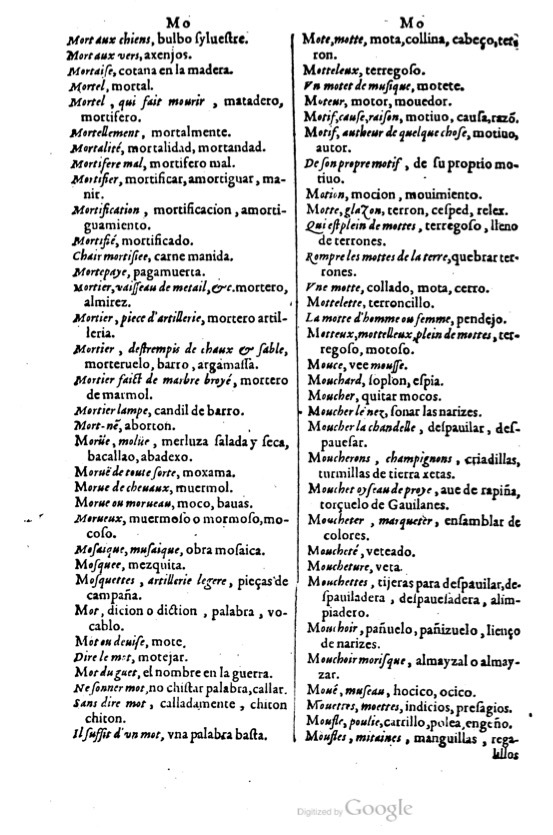 Mo
Mort aux chiens, bulbo ſylueſtre.
Mort aux vers, axenjos.
Mortaiſe, cotana en la madera.
Mortel, mortal.
Mortel, qui fait mourir, matadero,
mortifero.
Mortellement, mortalmente.
Mortalité, mortalidad, mortandad.
Mortifere mal, mortifero mal.
Mortifier, mortificar, amortiguar, ma-
nir.
Mortification, mortificacion, amorti-
guamiento.
Mortifié, mortificado.
Chair mortifiee, carne manida.
Mortepaye, pagamuerta.
Mortier, vaiſſeau de metail, &c. mortero,
almirez.
Mortier, piece d'artillerie, mortero artil-
leria.
Mortier, deſtrempis de chaux & ſable,
morteruelo, barro, argamaſſa.
Mortier faict de marbre broyé, mortero
de marmol.
Mortier lampe, candil de barro.
Mort-né, aborton.
Moruë, moluë, merluza ſalada y ſeca,
bacallao, abadexo.
Moruë de toute ſorte, moxama.
Morue de cheuaux, muermol.
Morue ou morueau, moco, bauas.
Morueux, muermoſo o mormoſo, mo-
coſo.
Moſaique, muſaique, obra moſaica.
Moſquee, mezquita.
Moſquettes, artillerie legere, pieças de
campaña.
Mot, dicion o diction, palabra, vo-
cablo.
Mot ou deuiſe, mote.
Dire le mot, motejar.
Mot du guet, el nombre en la guerra.
Ne ſonner mot, no chiſtar palabra, callar.
Sans dire mot, calladamente, chiton
chiton.
Il ſuffit d'vn mot, vna palabra baſta.
Mo
Mote, motte, mota, collina, cabeço, ter-
ron.
Motteleux, terregoſo.
Vn motet de muſique, motete.
Moteur, motor, mouedor.
Motif, cauſe, raiſon, motiuo, cauſa, razō.
Motif, autheur de quelque choſe, motiuo,
autor.
De ſon propre motif, de ſu proptio mo-
tiuo.
Motion, mocion, mouimiento.
Motte, glazon, terron, ceſped, relex.
Qui eſt plein de mottes, terregoſo, lleno
de terrones.
Rompre les mottes de la terre, quebrar ter-
rones.
Vne motte, collado, mota, cerro.
Mottelette, terroncillo.
La motte d'homme ou femme, pendejo.
Motteux, mottelleux, plein de mottes, ter-
regoſo, motoſo.
Mouce, vee mouſſe.
Mouchard, ſoplon, eſpia.
Moucher, quitar mocos.
Moucher le nez, ſonar las narizes.
Moucher la chandelle, deſpauilar, deſ-
paueſar.
Moucherons, champignons, criadillas,
turmillas de tierra xetas.
Mouchet oyſeau de proye, aue de rapiña,
torçuelo de Gauilanes.
Moucheter, marqueter, enſamblar de
colores.
Moucheté, veteado.
Moucheture, veta.
Mouchettes, tijeras para deſpauilar, de-
ſpauiladera, deſpaueſadera, alim-
piadero.
Mouchoir, pañuelo, pañizuelo, lienço
de narizes.
Mouchoir moriſque, almayzal o almay-
zar.
Mouë, muſeau, hocico, ocico.
Mouettes, moettes, indicios, preſagios.
Moufle, poulie, carrillo, polea, engeño.
Moufles, mitaines, manguillas, rega-
lillos
Digitized by Google